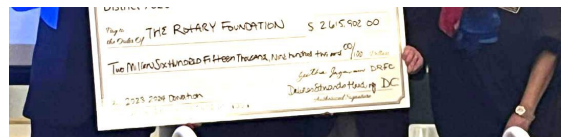 District 7020
Pay to
the Order Of THE ROTARY FOUNDATION $ 2,615,902.00
Two Million Six Hundred Fifteen Thousand, Nine hundred two and 00/100 Dollars
DRFC
2023-2024 Donation DC
Authorized Signature